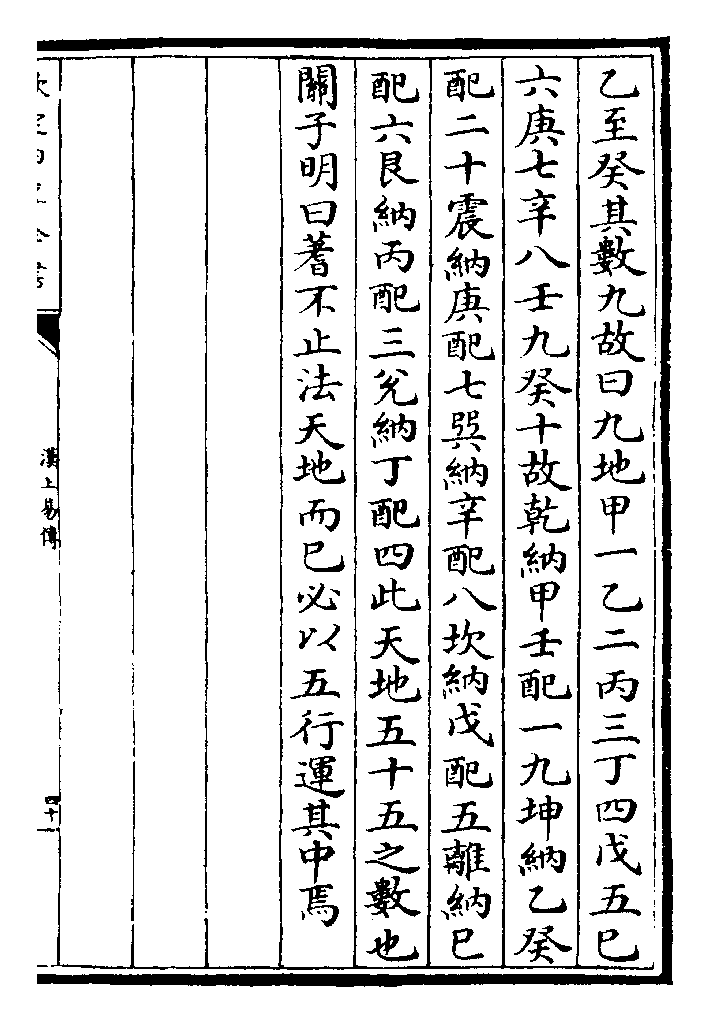 乙至癸其數九故曰九地甲一乙二丙三丁四戊五巳
六庚七辛八壬九癸十故乾納甲壬配一九坤納乙癸
配二十震納庚配七巽納辛配八坎納戊配五離納巳
配六艮納丙配三兊納丁配四此天地五十五之數也
關子明曰蓍不止法天地而已必以五行運其中焉
漢上易傳
四十一